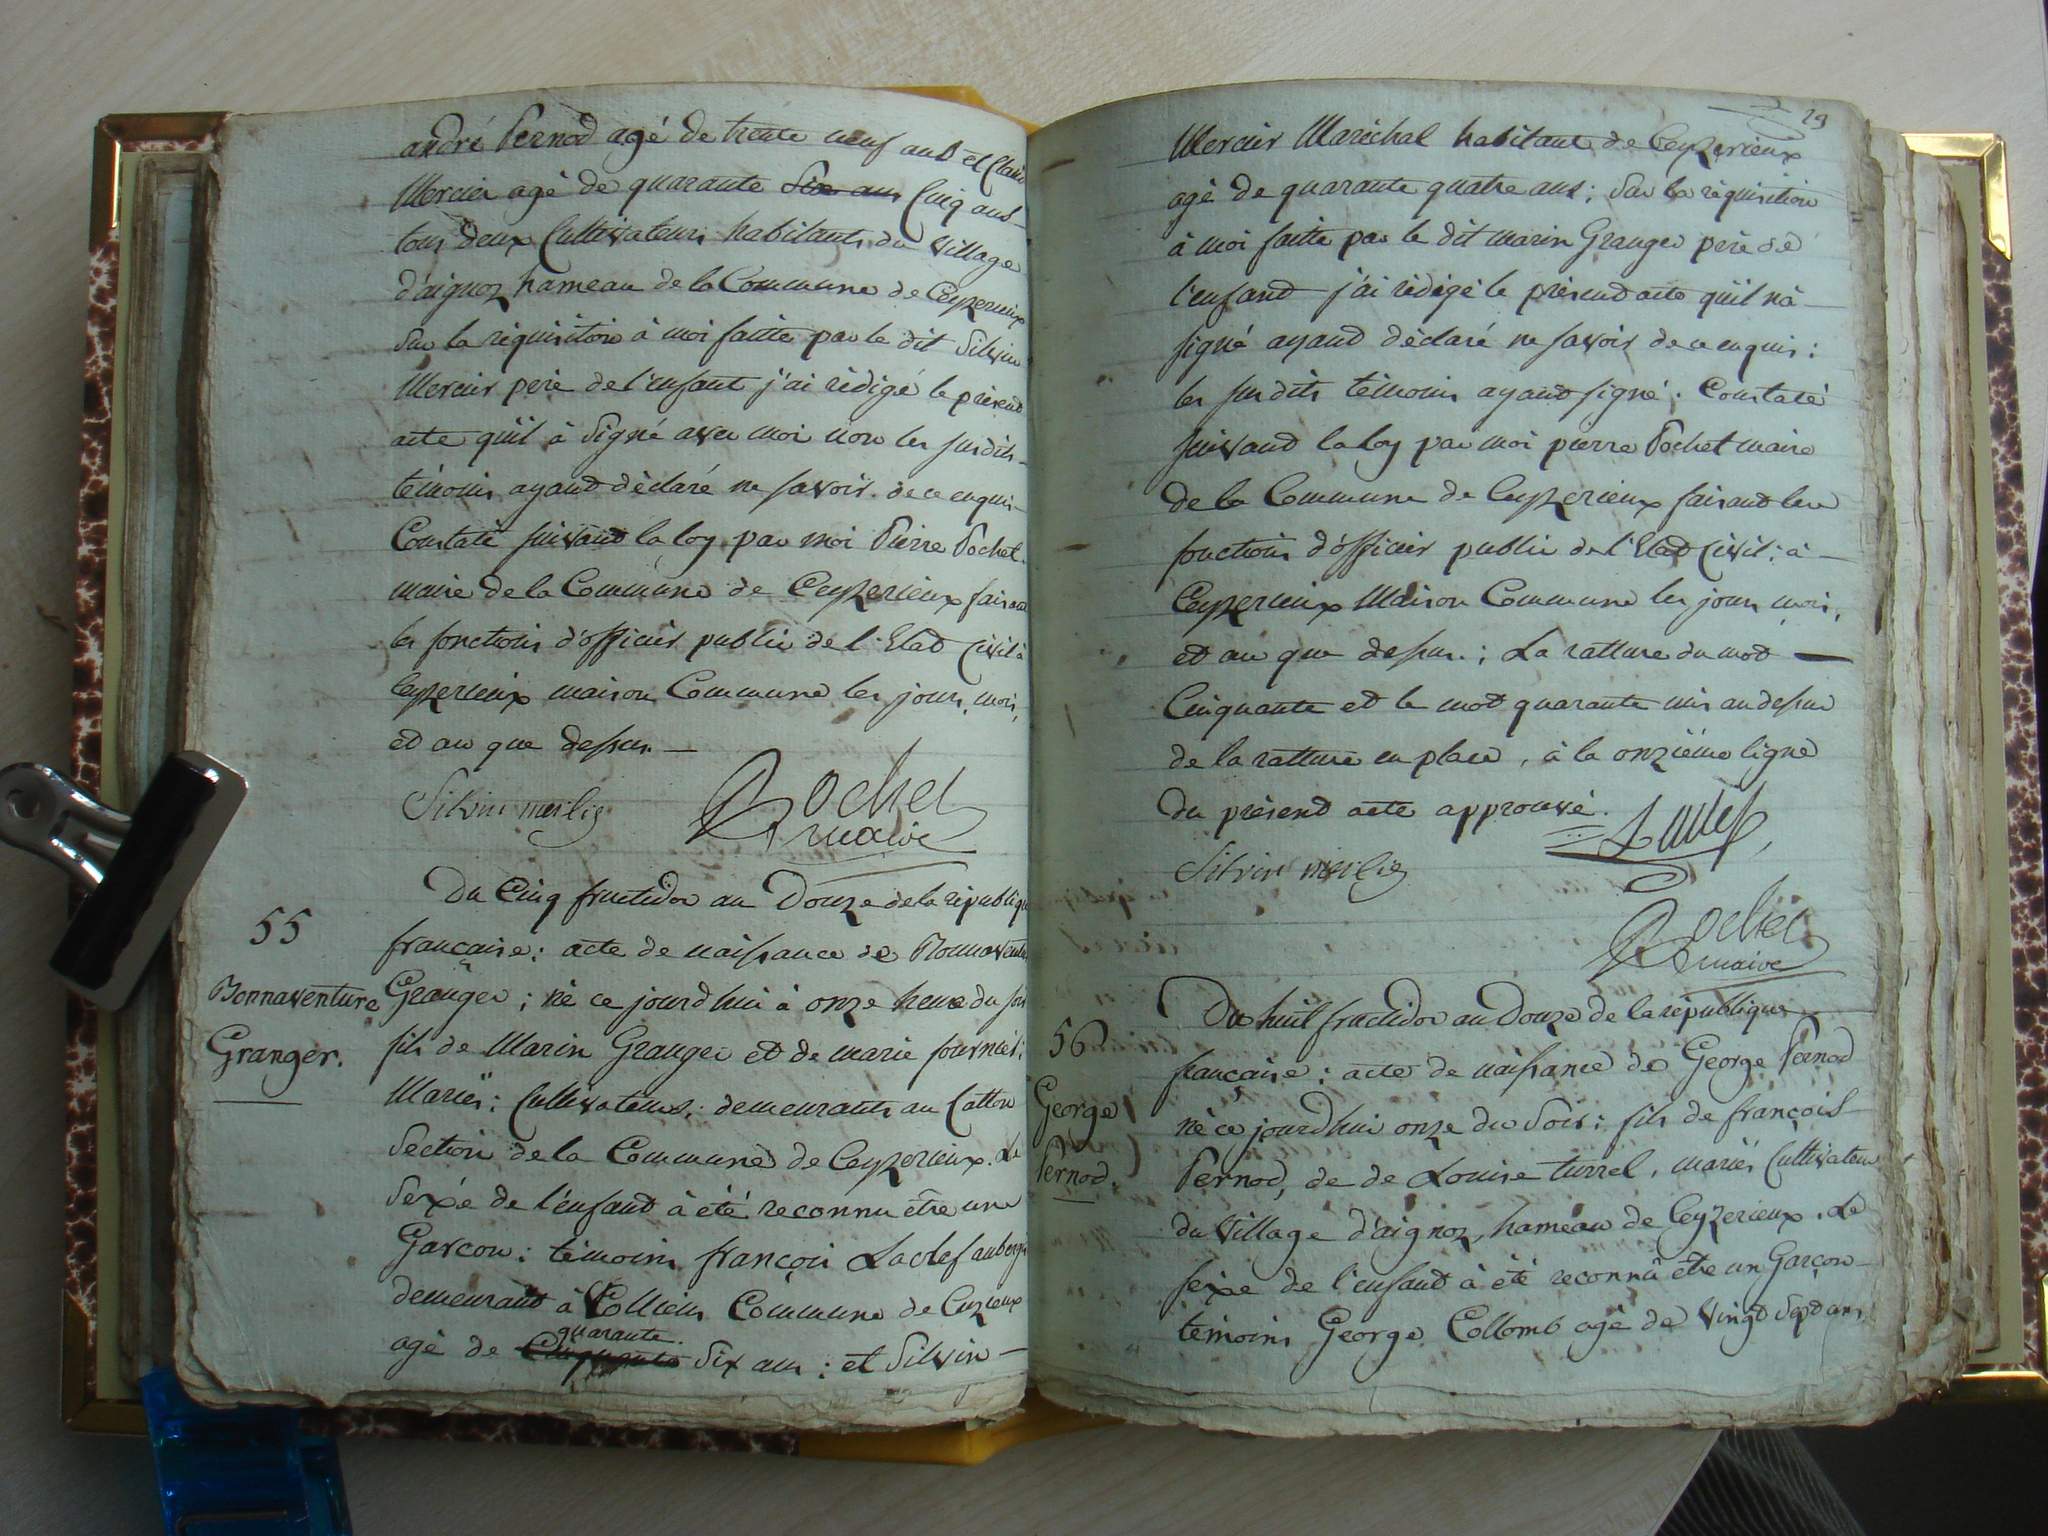 andré Pernod agé de trente neuf ans et Claud
Mercier agé de quarante Six ans Cinq ans
tous deux Cultivateurs habitants du Village
d'aignoz hameau de la Commune de Ceyzerieux
Sur la réquisition à moi faitte par le dit Silvin
Mercier pere de l'enfant j'ai rédigé le présend
acte qu'il à Signé avec moi non les susdits
témoins ayand déclaré ne savoir de ce enquis
Constaté suivand la loy par moi Pierre Pochet
maire de la Commune de Ceyzerieux faisand
les fonctions d'officier public de l'Etad Civil à
Ceyzerieux maison Commune les jours, mois,
et an que dessus.
Silvin
Pochet
maire
55
Bonnaventure
Granger.
Du Cinq fructidor an Douze de la républiqu
française : acte de naissance de Bonnaventure
Granger ; né ce jourd'hui à onze heure du soir
fils de Marin Granger et de marie fournier ;
Mariés : Cultivateurs ; demeurants au Catton
Section de la Commune de Ceyzerieux. Le
Sexe de l'enfand à été reconnu être un
Garcon : témoins françois Laclef auberg
demeurand à Collieu Commune de Cuzieux
quarante
agé de Cinquante Six ans : et Silvin
29
Mercier Maréchal habitant de Ceyzerieux
agé de quarante quatre ans ; Sur la réquisition
à moi faitte par le dit marin Granger pere de
l'enfand j'ai rédigé le présend acte qu'il n'à
signé ayand déclaré ne savoir de ce enquis :
les susdits témoins ayand signé. Constaté
suivand la loy par moi pierre Pochet maire
de la Commune de Ceyzerieux faisand les
fonctions d'officier public de l'Etad Civil ; à
Ceyzerieux Maison Commune les jours, mois,
et an que dessus. ; La ratture du mod
Cinquante et le mod quarante mis au dessus
de la ratture en place, à la onziéme ligne
du présend acte approuvé.
Silvin
Pochet
maire
56
George
Pernod.
Du huit fructidor an Douze de la république
française : acte de naissance de George Pernod
né ce jourd'hui onze du Soir ; fils de françois
Pernod, de de Louise turrel, mariés Cultivateur
du Village d'aignoz, hameau de Ceyzerieux. Le
sexe de l'enfand à été reconnû être un Garçon
témoins George Collomb agé de vingd Sept ans